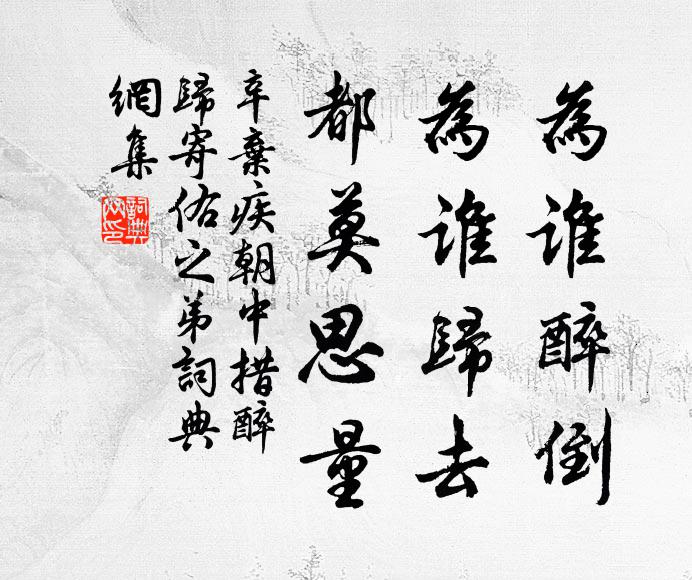 為誰醉倒
為誰歸去
都莫思量
辛棄疾朝中措醉
歸寄佑之弟詞典
網集
詞典網印